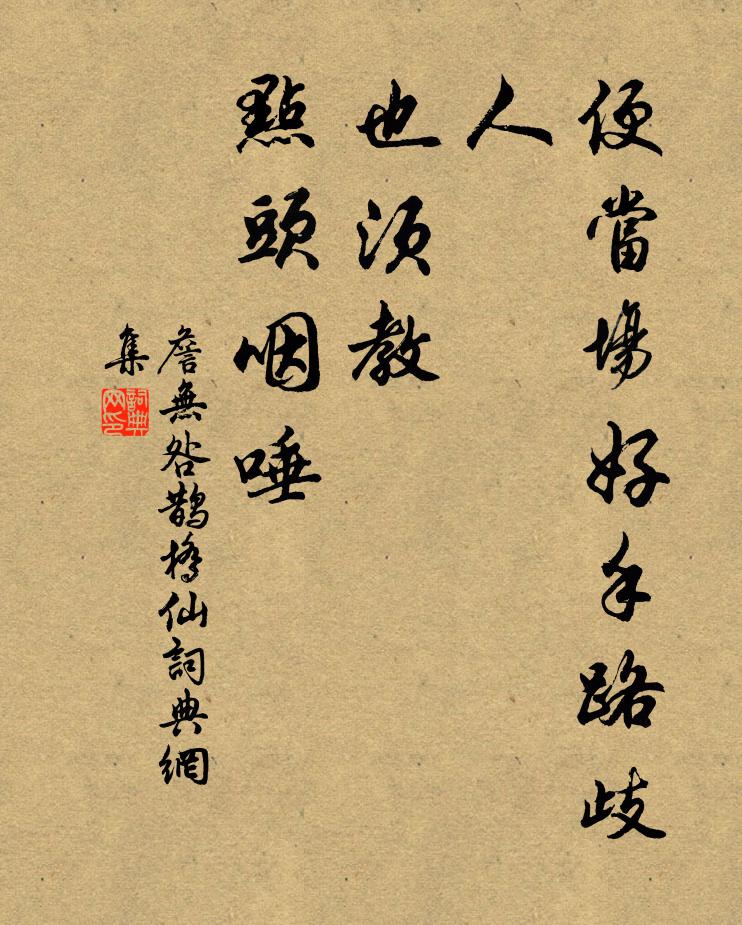 便當場好手路歧
人
也須教
點頭咽唾
詹無咎鵲橋仙詞典網
集
詞典
网印